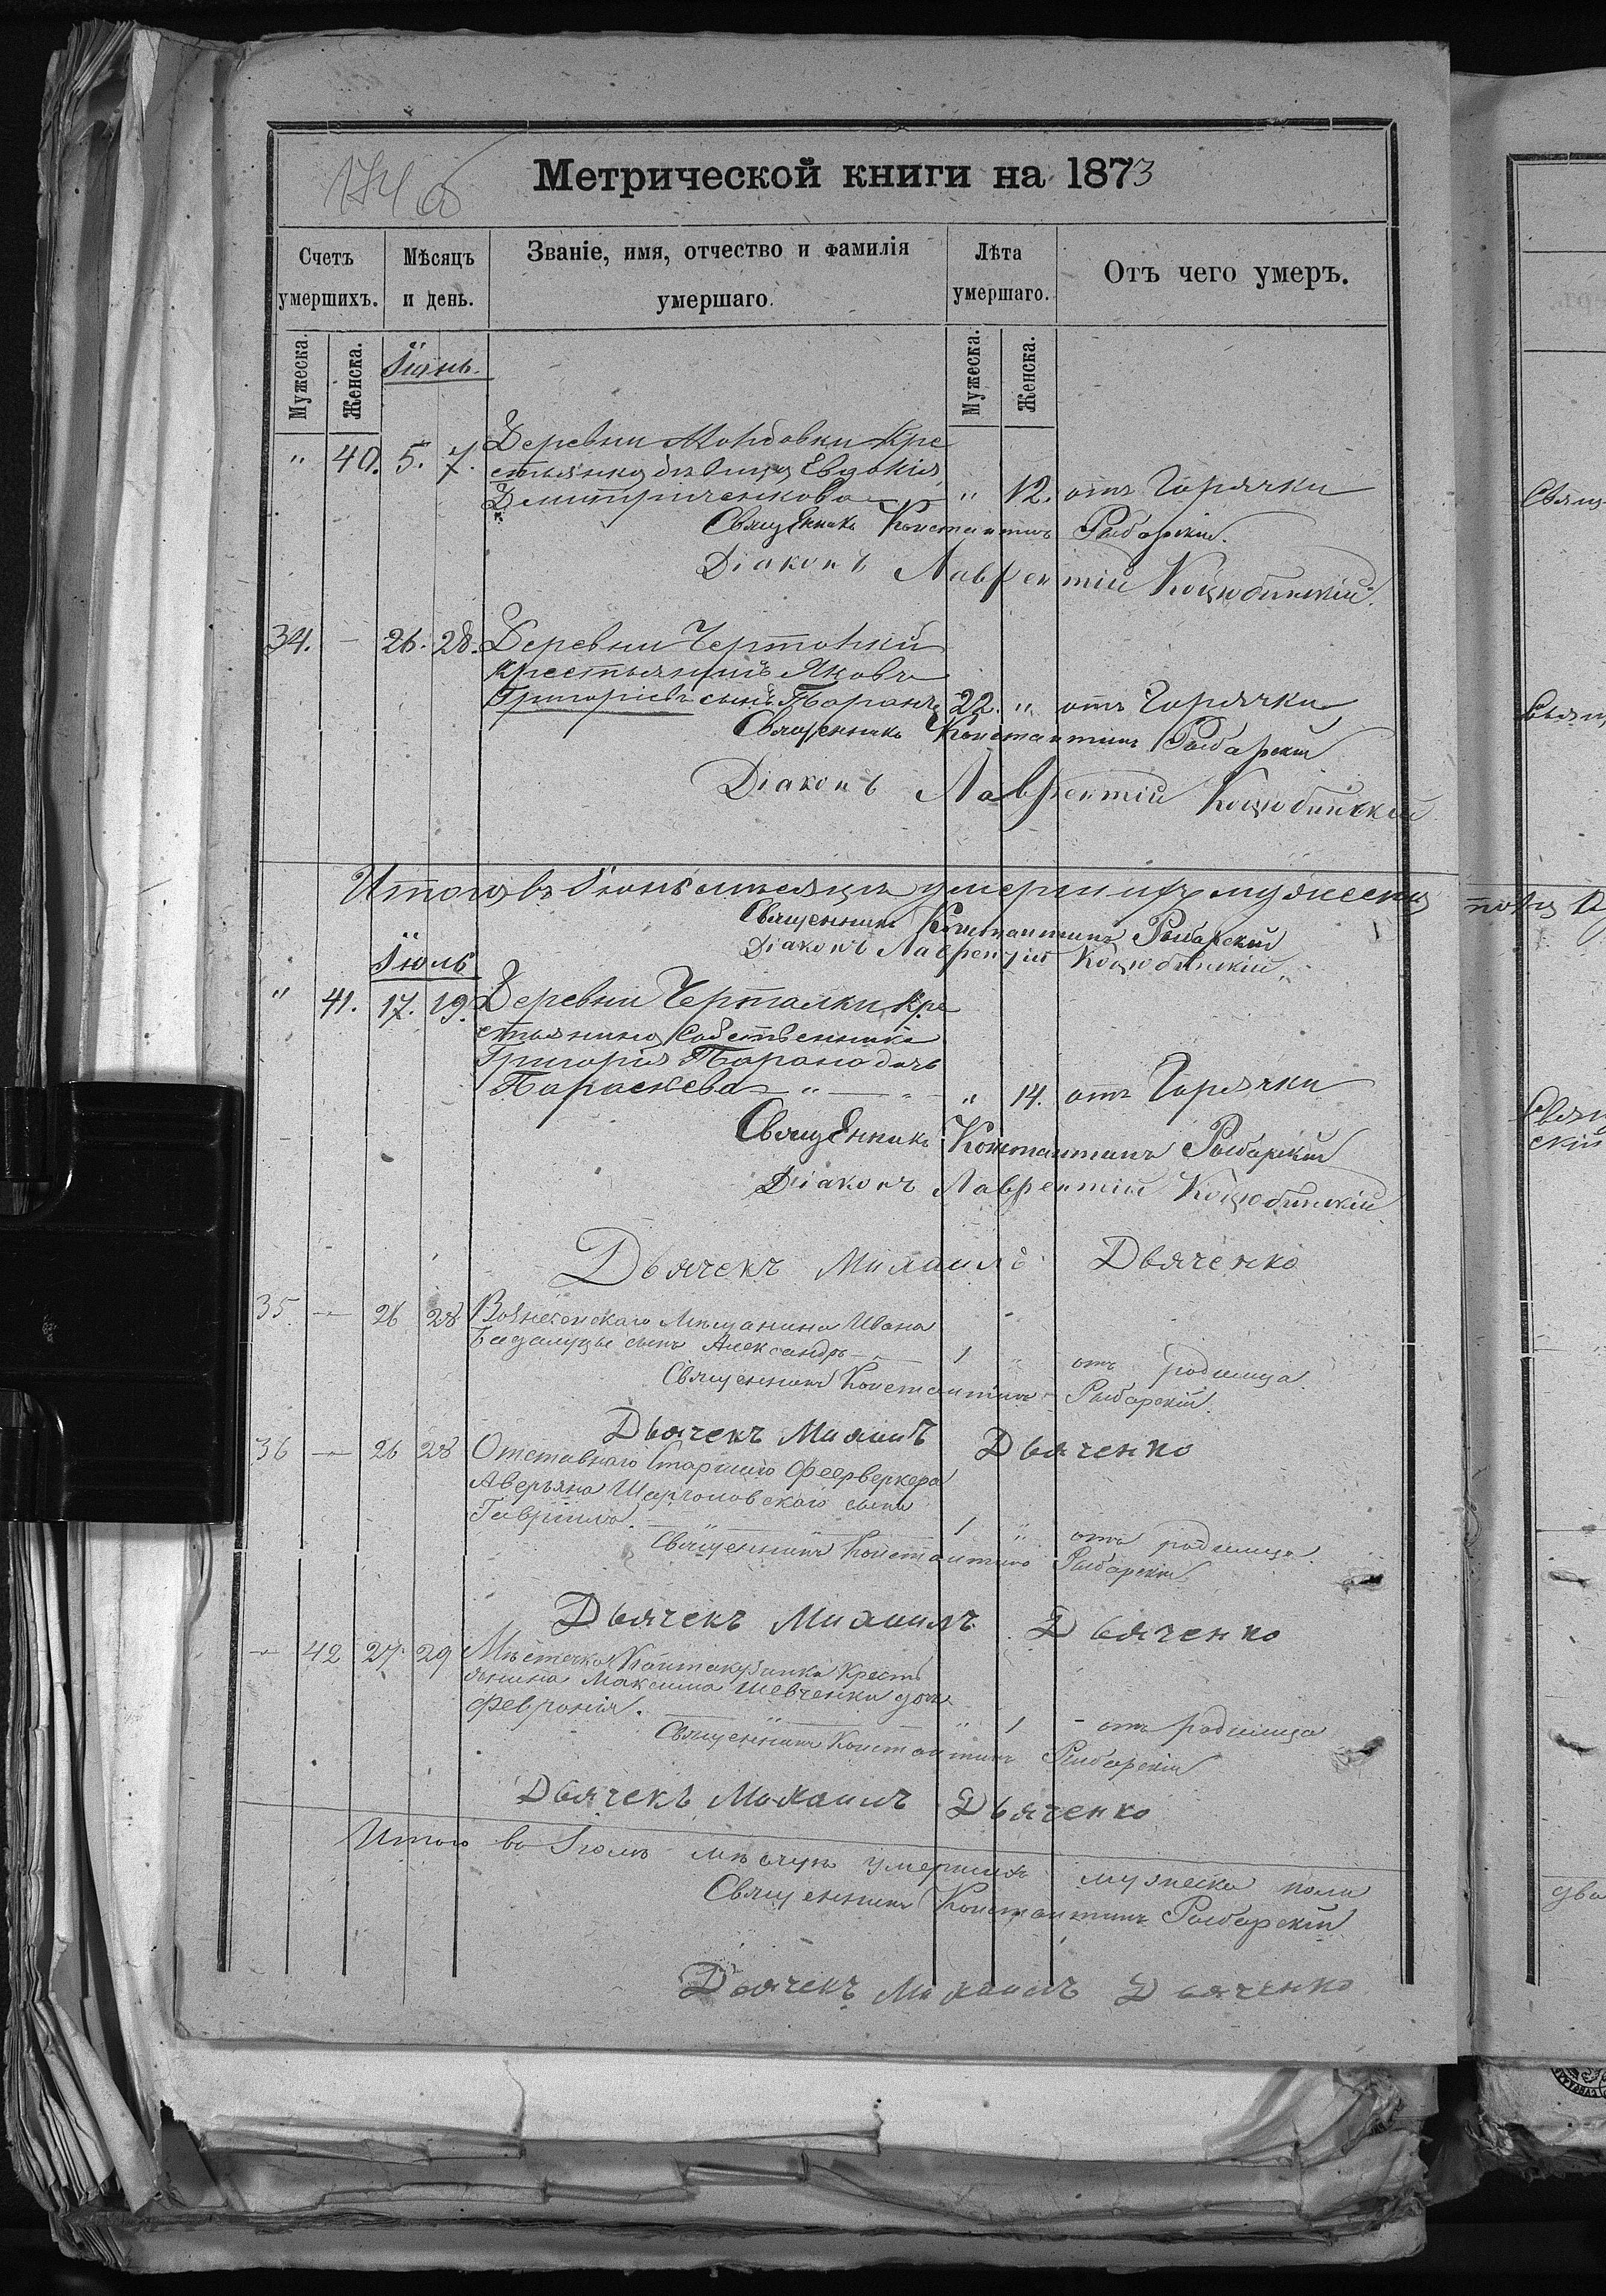 174 об
Метрической книги на 1873
Счетъ умершихъ.
Мѣсяцъ и день.
Званіе, имя, отчество и фамилія умершаго.
Лѣта умершаго.
Отъ чего умеръ.
Мужеска.
Женска.
Мужеска.
Женска.
Іюнь.
" 40. 5. 7. Деревни Кре
стьянка дѣвица Евдокія
Дмитриченкова " 12. отъ Горячки
Священникъ Константинъ Рыбарскій.
Діаконъ Лаврентій Коцюбинскій.
34. — 26. 28. Деревни
крестьянинъ Яковъ
Григоріевъ сынъ Баранъ 22. " отъ Горячки
Священникъ Константинъ Рыбарскій
Діаконъ Лаврентій Коцюбинскій
Итого въ Іюнѣ мѣсяцѣ умершихъ мужеска
Священникъ Константинъ Рыбарскій
Діаконъ Лаврентій Коцюбинскій
Іюль
" 41. 17. 19. Деревни Черталки Кре
стьянина Собственника
Григорія Барана дочь
Параскева " 14. отъ Горячки
Священникъ Константинъ Рыбарскій
Діаконъ Лаврентій Коцюбинскій
Дьячекъ Михаилъ Дьяченко
35 — 26 28 Вознесенскаго Мѣщанина Ивана
сынъ Александръ 1 " отъ родимца.
Священникъ Константинъ Рыбарскій.
Дьячекъ Михаилъ Дьяченко
36 — 26 28 Отставнаго Старшаго Феерверкера
Аверьяна сынъ
Гавріилъ. 1 " отъ родимца.
Священникъ Константинъ Рыбарскій
Дьячекъ Михаилъ Дьяченко
— 42 27 29 Мѣстечка Кантакузинки Кресть
янина Максима Шевченка дочь
Февронія. " 1 отъ родимца
Священникъ Константинъ Рыбарскій
Дьячекъ Михаилъ Дьяченко
Итого въ Іюлѣ мѣсяцѣ умершихъ мужеска пола
Священникъ Константинъ Рыбарскій
Дьячекъ Михаилъ Дьяченко